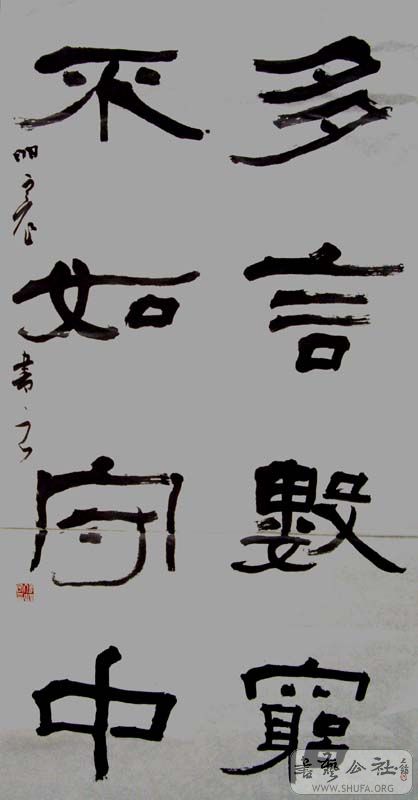 多言數窮
不如守中
書藝公社
WWW.SHUFA.ORG